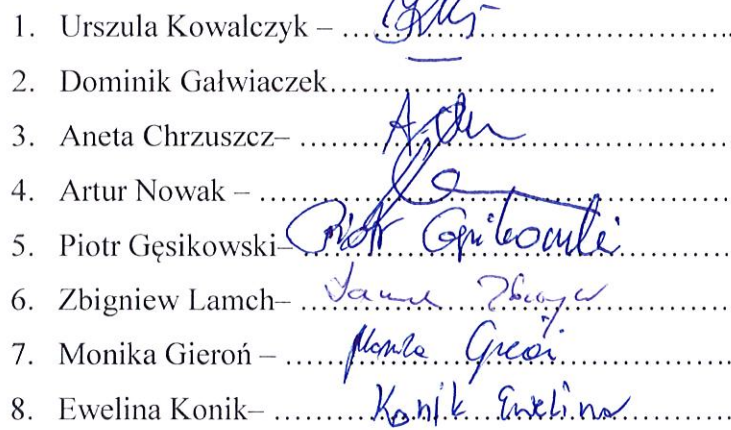 1. Urszula Kowalczyk – ........................................
2. Dominik Gałwiaczek........................................
3. Aneta Chrzuszcz– ........................................
4. Artur Nowak – ........................................
5. Piotr Gęsikowski– Piotr Gęsikowski ............
6. Zbigniew Lamch– Lamch Zbigniew ............
7. Monika Gieroń – ...... Monika Gieroń ............
8. Ewelina Konik– ......... Konik Ewelina ............